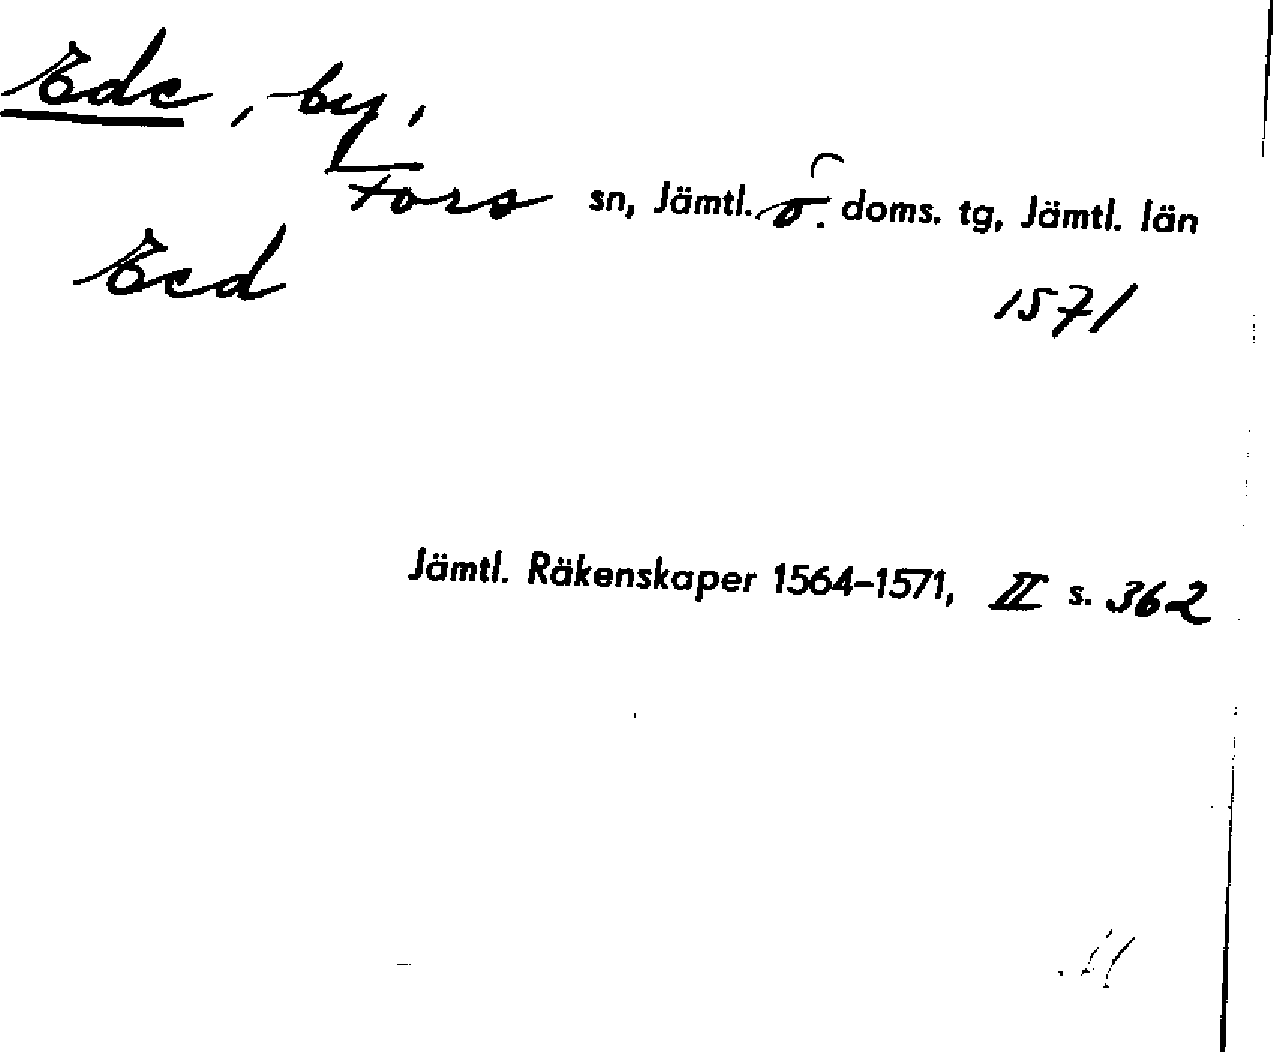 Ede, by,
Fors sn, Jämtl. ö. doms. tg, Jämtl. län
Eed
1571
Jämtl. Räkenskaper 1564-1571, II s. 362